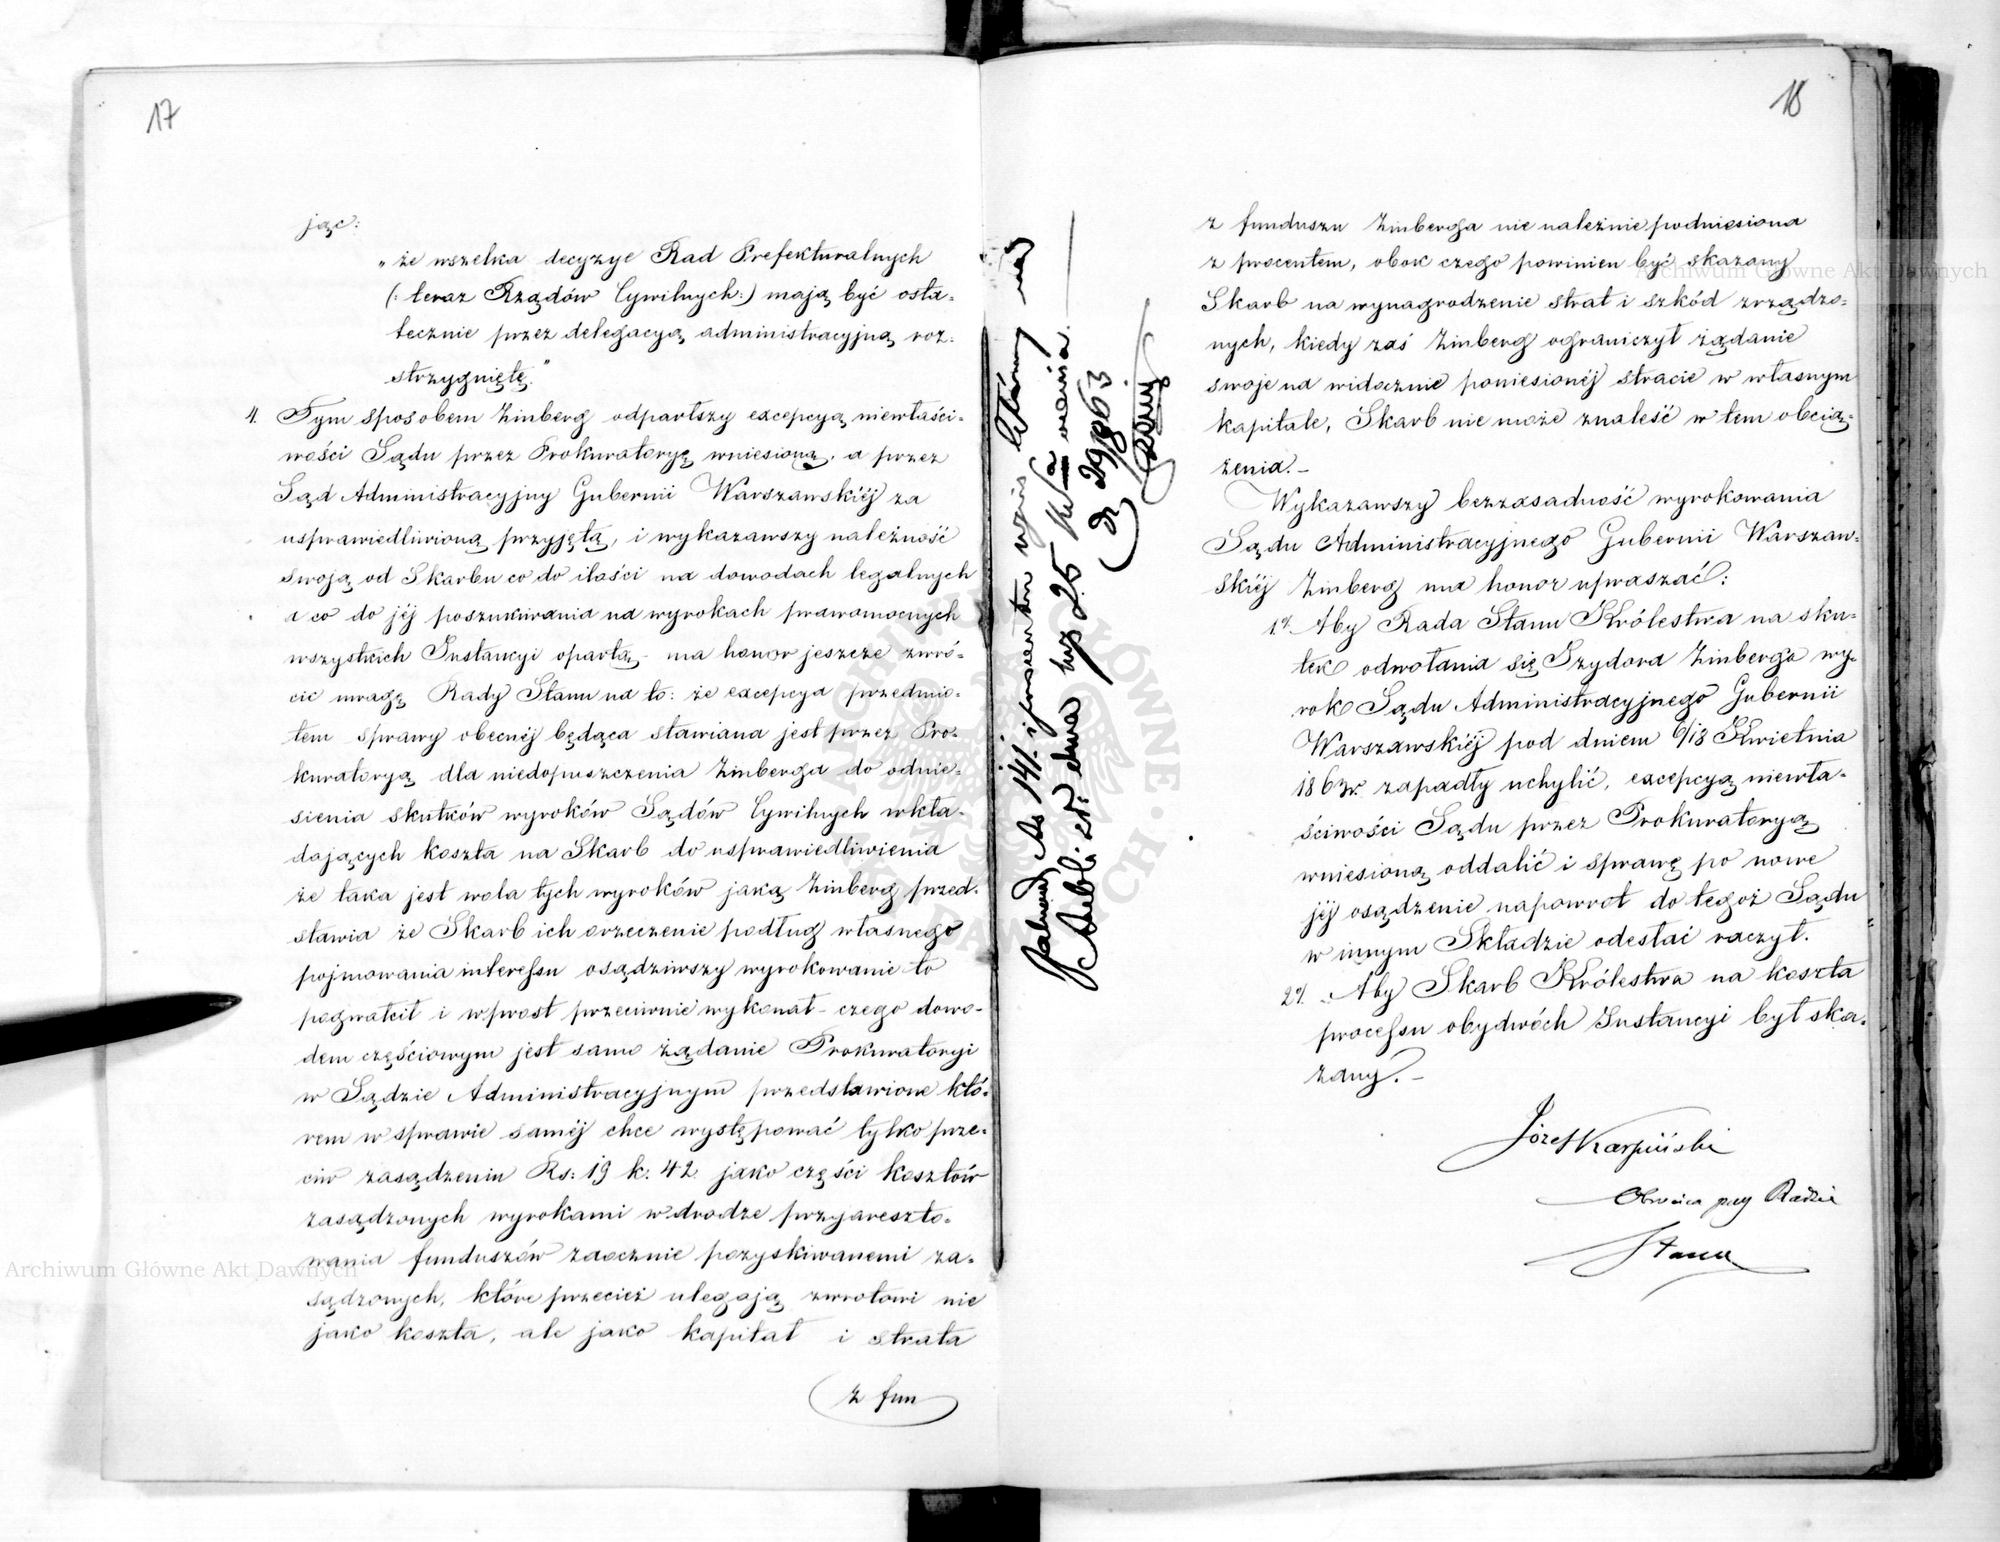 17
jąc:
„że wszelka decyzye Rad Prefekturalnych
(: teraz Rządów Cywilnych:) mają być osta-
tecznie przez delegacyą administracyjną roz-
strzygnięte."
4. Tym sposobem Zinberg odpartszy excepcyą niewłaści-
wości Sądu przez Prokuratoryę wniesioną, a przez
Sąd Administracyjny Gubernii Warszawskiéj za
usprawiedliwioną przyjętą, i wykazawszy należność
swoją od Skarbu co do ilości na dowodach legalnych
a co do jéj poszukiwania na wyrokach prawomocnych
wszystkich Instancyi opartą - ma honor jeszcze zwró-
cić uwagę Rady Stanu na to: że excepcya przedmio-
tem sprawy obecnéj będąca stawiana jest przez Pro-
kuratoryą dla niedopuszczenia Zinberga do odnie-
sienia skutków wyroków Sądów Cywilnych wkła-
dających koszta na Skarb do usprawiedliwienia
że taka jest wola tych wyroków jaką Zinberg przed-
stawia że Skarb ich orzeczenie podług własnego
pojmowania interessu osądziwszy wyrokowanie to
pogwałcił i wprost przeciwnie wykonał - czego dowo-
dem częściowym jest samo żądanie Prokuratoryi
w Sądzie Administracyjnym przedstawione któ-
rem w sprawie saméj chce występować tylko prze-
ciw zasądzeniu Rs: 19 k. 42 jako części kosztów
zasądzonych wyrokami w drodze przyareszto-
wania funduszów zaocznie pozyskiwanemi za-
sądzonych, które przecież ulegają zwrotowi nie
jako koszta, ale jako kapitał i strata
z fun
No 141. i
rsr 25
29/8 863
18
z funduszu Zinberga nie należnie podniesiona
z procentem, obok czego powinien być skazany
Skarb na wynagrodzenie strat i szkód zrządzo-
nych, kiedy zaś Zinberg ograniczył żądanie
swoje na widocznie poniesionéj stracie w własnym
kapitale, Skarb nie może znaleść w tem obcią-
żenia. -
Wykazawszy bezzasadność wyrokowania
Sądu Administracyjnego Gubernii Warszaw-
skiéj Zinberg ma honor upraszać:
1º. Aby Rada Stanu Królestwa na sku-
tek odwołania się Izydora Zinberga wy-
rok Sądu Administracyjnego Gubernii
Warszawskiéj pod dniem 6/18 Kwietnia
1863 r. zapadły uchylić, excepcyą niewła-
ściwości Sądu przez Prokuratoryą
wniesioną oddalić i sprawę po nowe
jéj osądzenie napowrót do tegoż Sądu
w innym Składzie odesłać raczył.
2º. Aby Skarb Królestwa na koszta
processu obydwóch Instancyi był ska-
zany. -
Józef Karpiński
Obrońca przy Radzie
Stanu
Archiwum Główne Akt Dawnych
Archiwum Główne Akt Dawnych